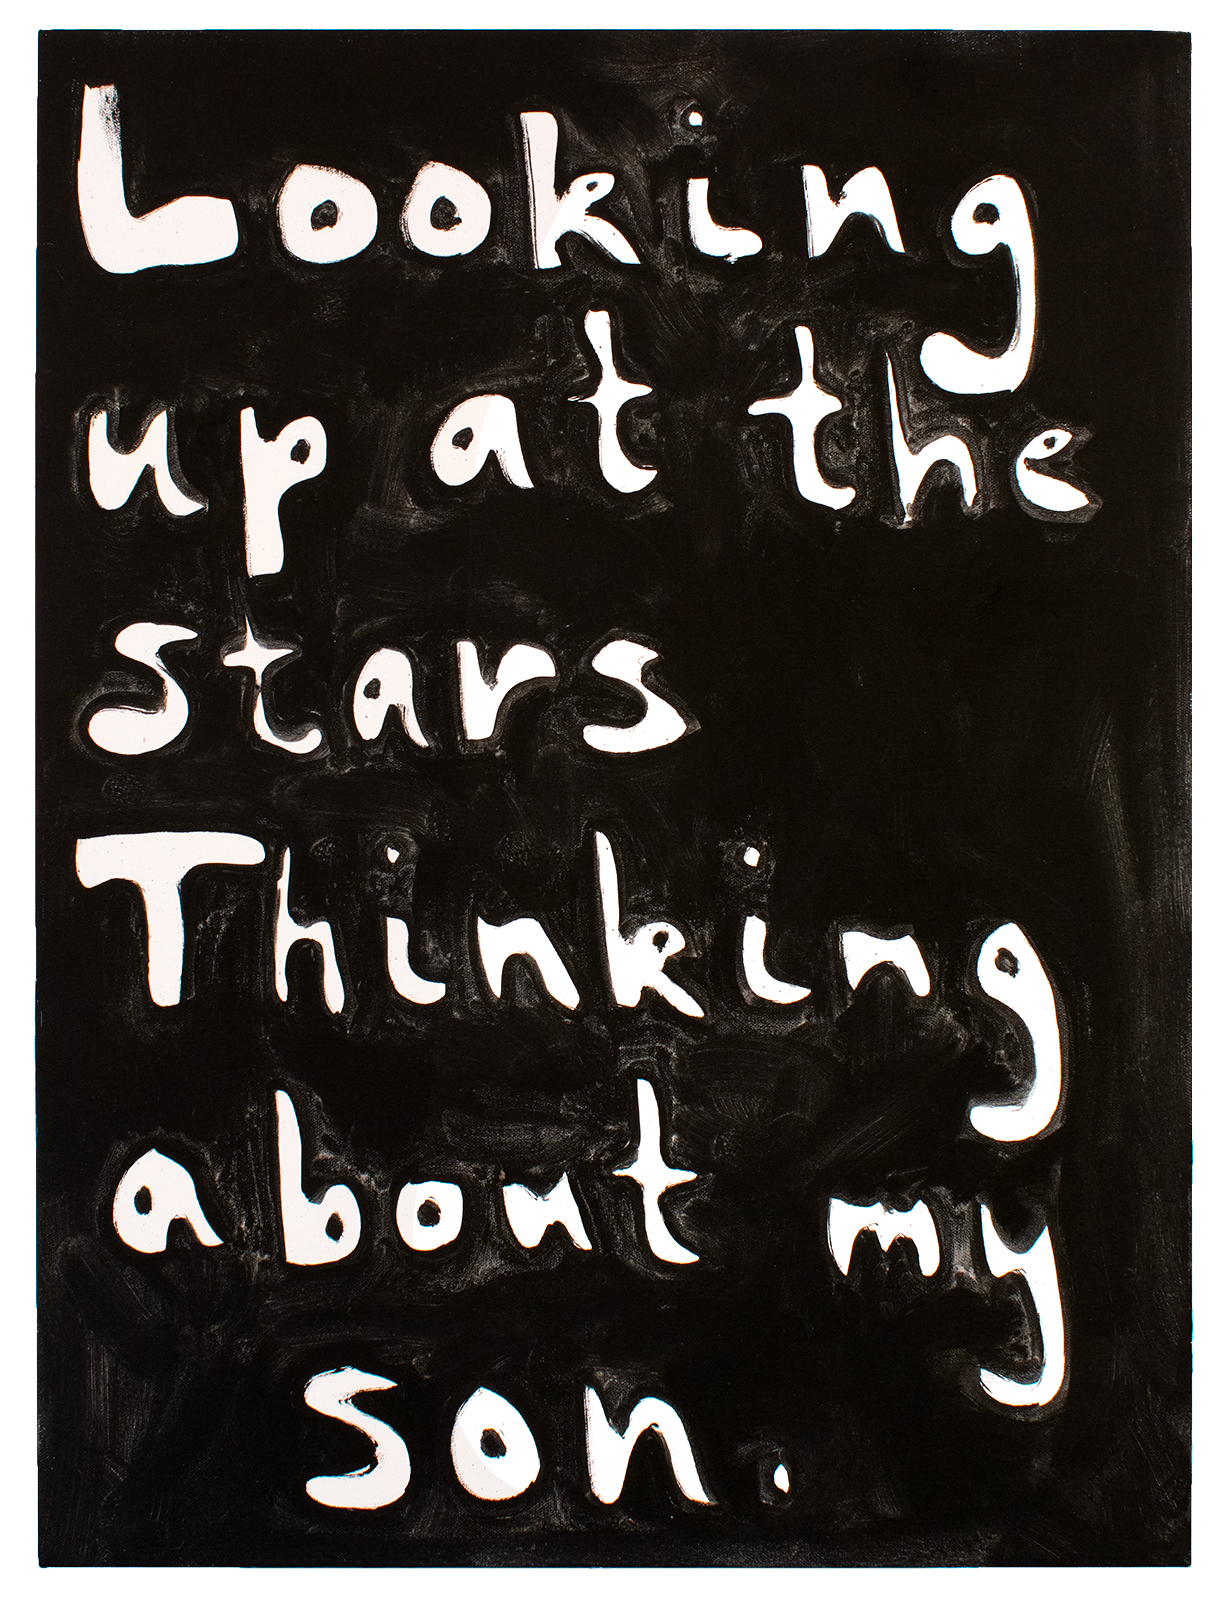 Looking
up at the
stars
Thinking
about my
son.